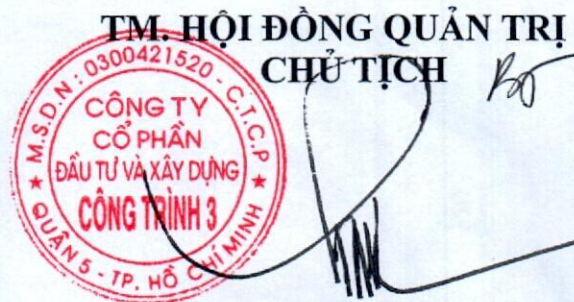 TM. HỘI ĐỒNG QUẢN TRỊ
CHỦ TỊCH
M.S.D.N: 0300421520 - C.T.C.P
CÔNG TY
CỔ PHẦN
ĐẦU TƯ VÀ XÂY DỰNG
CÔNG TRÌNH 3
★ QUẬN 5 - TP. HỒ CHÍ MINH ★